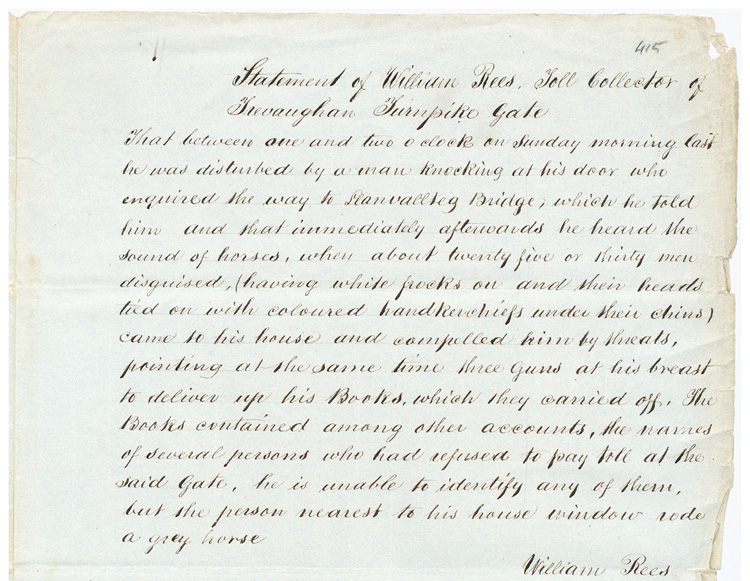 415
Statement of William Rees, Toll Collector of
Trevaughan Turnpike Gate
That between one and two o clock on Sunday morning last
he was disturbed by a man knocking at his door who
enquired the way to Llanvallteg Bridge, which he told
him and that immediately afterwards he heard the
sound of horses, when about twenty five or thirty men
disguised, (having white frocks on and their heads
tied on with coloured handkerchiefs under their chins)
came to his house and compelled him by threats,
pointing at the same time three Guns at his breast
to deliver up his Books, which they carried off. The
Books contained among other accounts, the names
of several persons who had refused to pay toll at the
said Gate, he is unable to identify any of them,
but the person nearest to his house window rode
a grey horse
William Rees